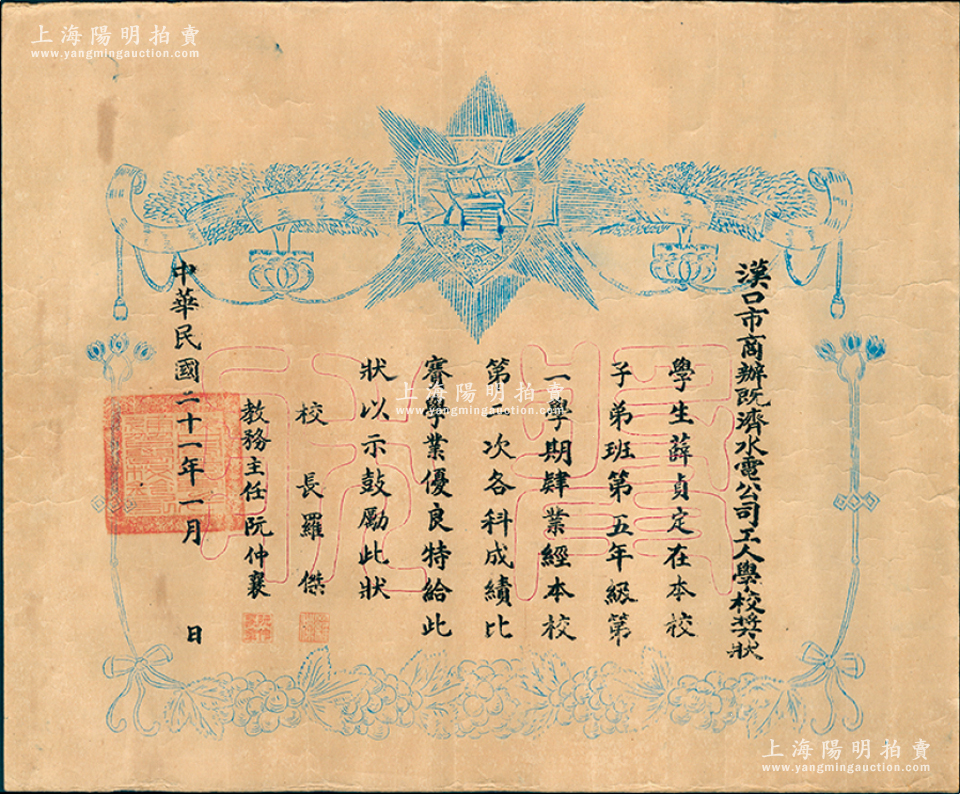 上海陽明拍賣
www.yangmingauction.com
上海陽明拍賣
www.yangmingauction.com
漢口市商辦既濟水電公司工人學校奬狀
學生薛貞定在本校
子弟班第五年級第
一學期肄業經本校
第二次各科成績比
賽學業優良特給此
狀以示鼓勵此狀
校長羅傑
教務主任阮仲襄
中華民國二十一年一月 日
獎狀
上海陽明拍賣
www.yangmingauction.com
上海陽明拍賣
www.yangmingauction.com